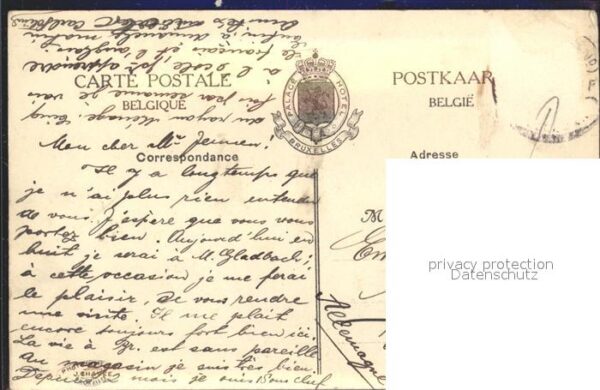 CARTE POSTALE
BELGIQUE
POSTKAAR
BELGIË
PALACE HOTEL
BRUXELLES
Correspondance
Adresse
Mon cher Mr Jensen!
Il y a longtemps que
je n'ai plus rien entendu
de vous. J'espère que vous vous
portez bien. Aujourd'hui en
huit je serai à M. Gladbach;
à cette occasion je me ferai
le plaisir, de vous rendre
une visite. Il me plait
encore toujours fort bien ici.
La vie à Br. est sans pareille
Au magasin je suis très bien.
Depuis 2 mois je suis sous chef
du rayon
fois par semaine je vais
à l'école pour apprendre
le français et l'anglais.
M
Allemagne
privacy protection
Datenschutz